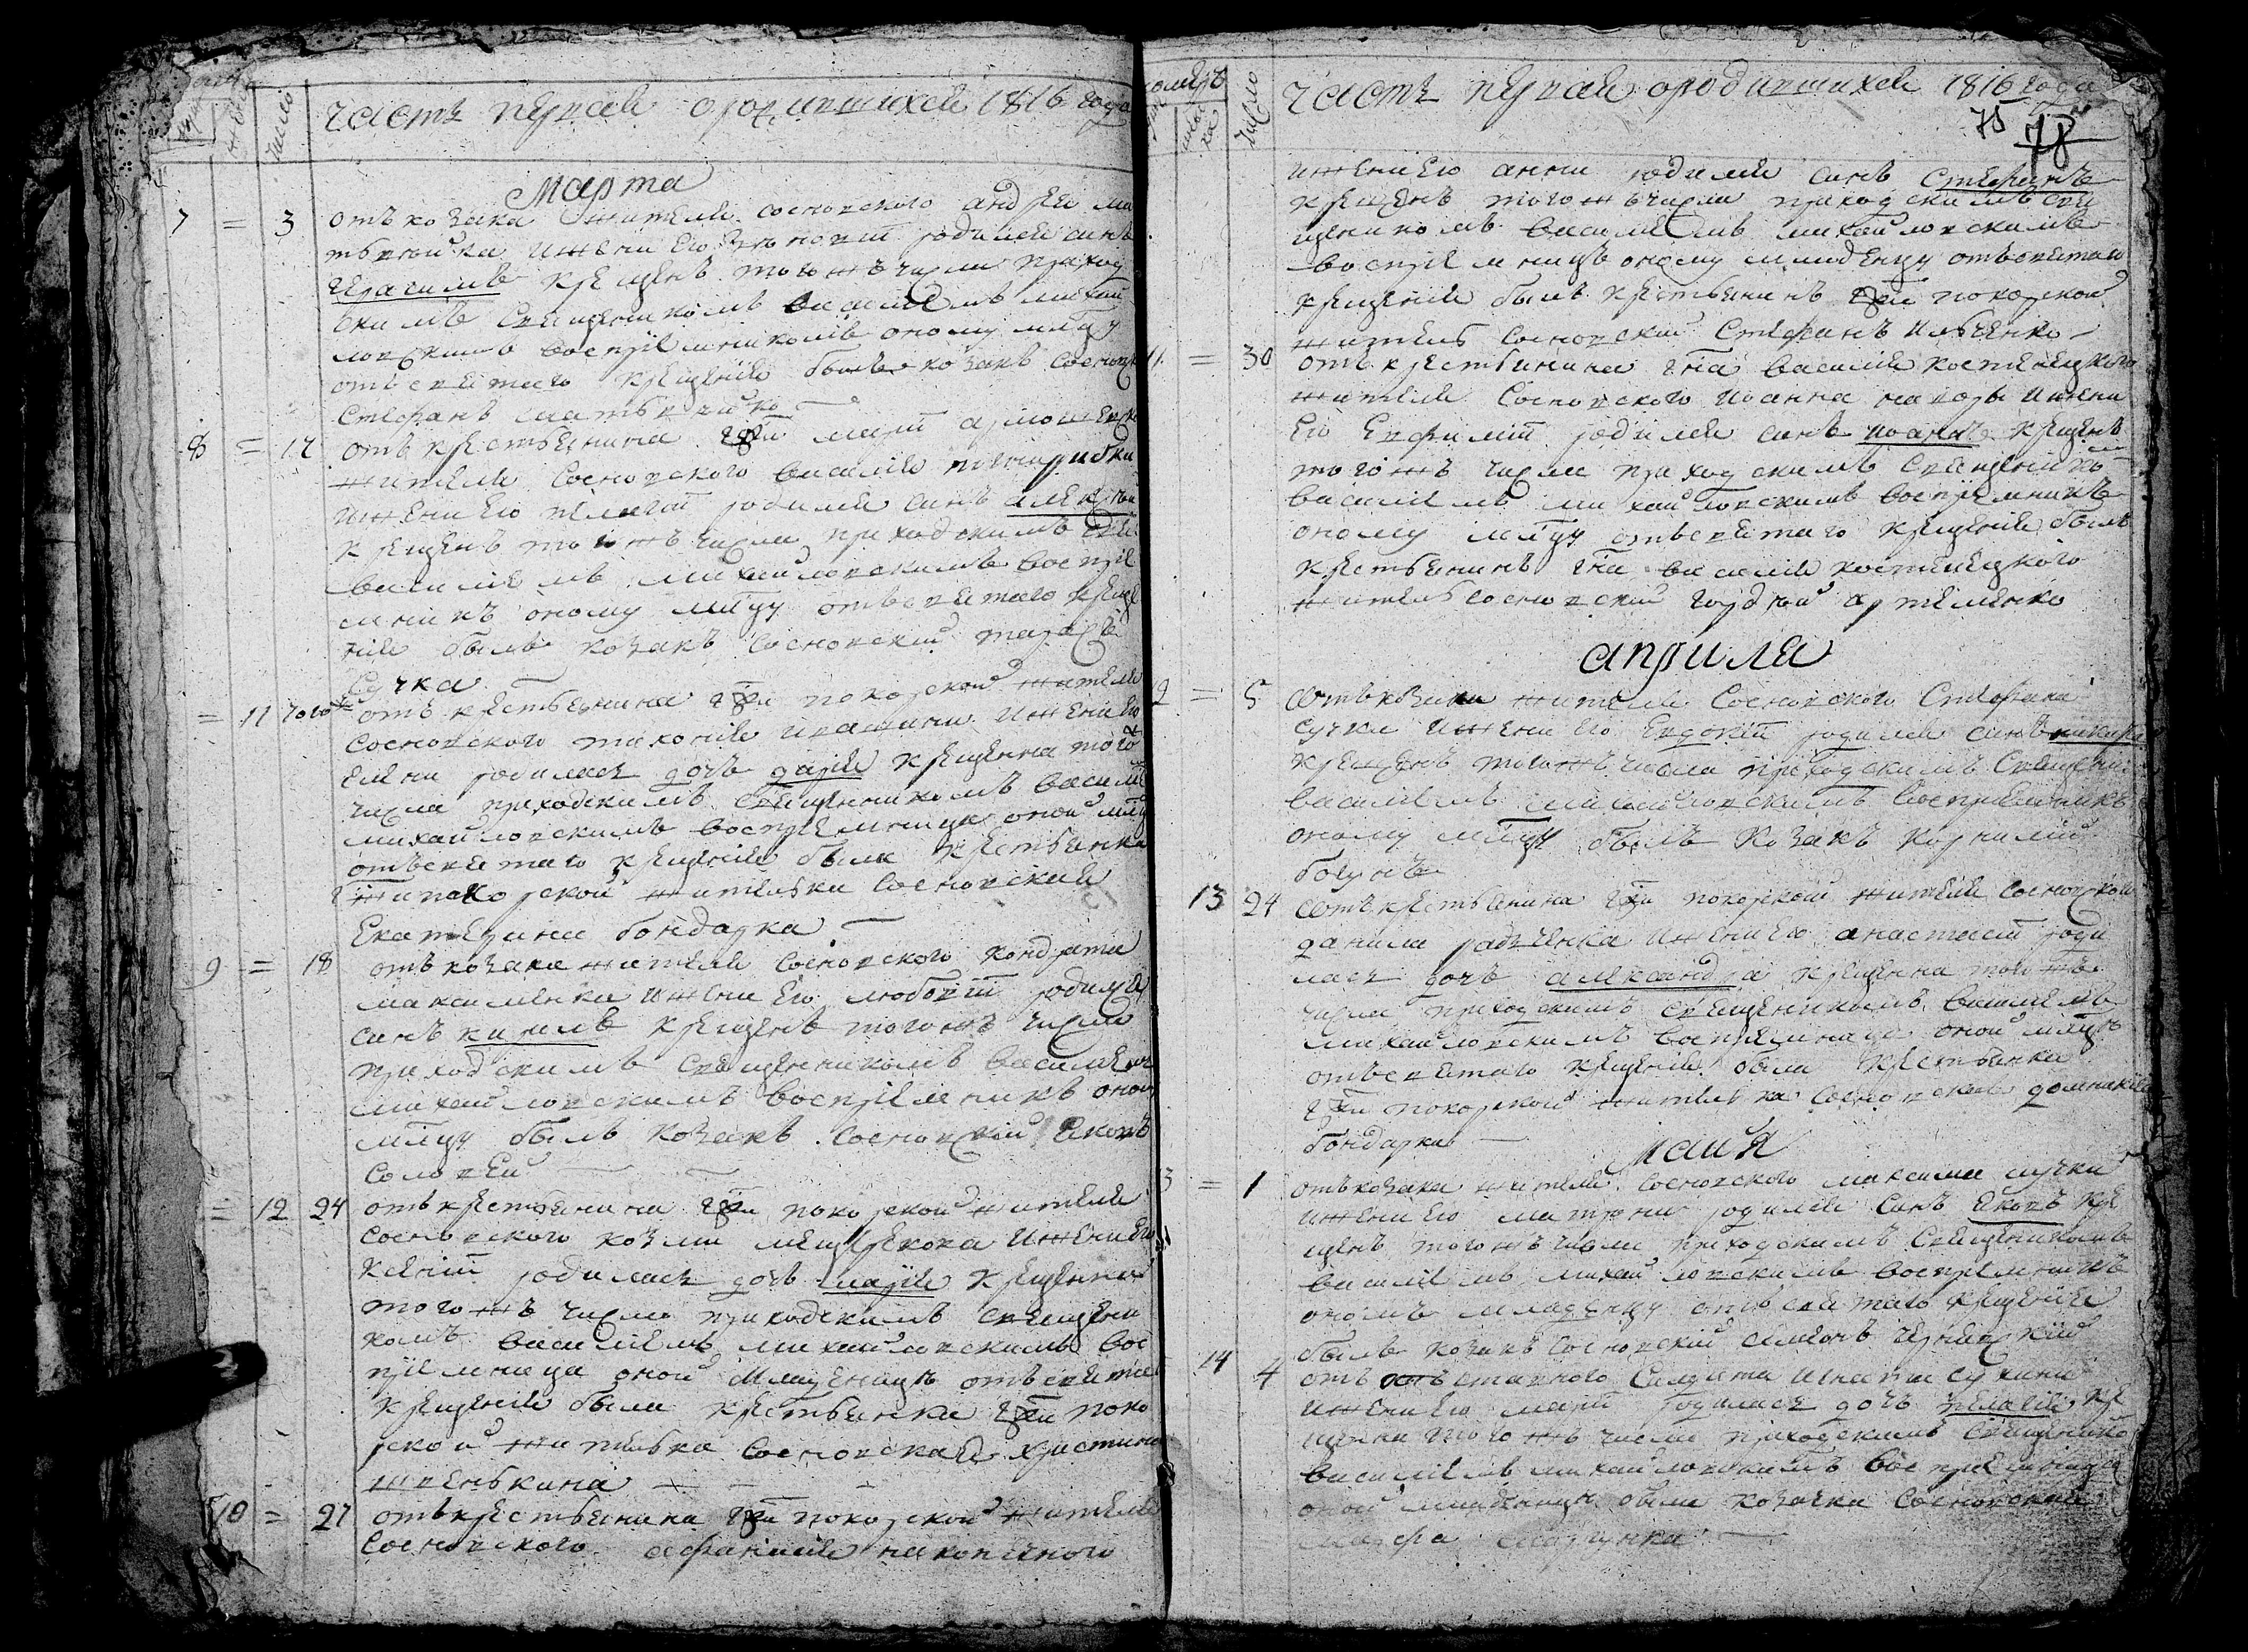 часть первая о родившихся 1816 года
число
Марта
7 = 3 отъ козака жителя сосновского андрея ма
твейка и жени его Зѣновіи родился синъ
Герасимъ крещенъ того жъ числа приход
скимъ Священикомъ василіемъ михай
ловскимъ воспріемникомъ оному млцу
отъ святаго крещенія былъ козакъ Сосновск
Стефанъ
8 = 12 отъ крестьянина гжи маріи
жителя Сосновского василія
и жени его пелагіи родился синъ алексѣй
крещенъ того жъ числа приходскимъ свя
василіемъ михайловскимъ воспріе
мникъ оному млцу отъ святаго креще
нія былъ козакъ Сосновский тарасъ
Сучка
= 11 того жъ отъ крестьянина гжи покорской жителя
Сосновского тихонія и жени его
елени родилась дочь дарія крещенна того
числа приходскимъ священникомъ василіе
михайловскимъ воспріемница оной млц
отъ святаго крещенія была крестьянка
гжи покорской жителька Сосновская
Екатерина бондарка
9 = 18 отъ козака жителя Сосновского кондрата
максименка и жени его любовіи родился
синъ кирилъ крещенъ того жъ числа
приходскимъ Священникомъ василіемъ
михайловскимъ воспріемникъ оном
млцу былъ козакъ Сосновский Яковъ
Соловей
= 12 24 отъ крестьянина гжи покорской жителя
Сосновского козми мещерякова и жени его
ксеніи родилась дочь марія крещенна
того жъ числа приходскимъ священи
комъ василіемъ михайловскимъ вос
пріемница оной младеницѣ отъ свята
крещенія была крестьянка гжи поко
рской жителька Сосновская христина
швенькина
10 = 27 отъ крестьянина гжи покорской жителя
Сосновского афанасія наконечного
число
часть первая о родившихся 1816 года
75 78
и жени его анни родился синъ Стефанъ
крещенъ того жъ числа приходскимъ свя
щеникомъ василіемъ михайловскимъ
воспріемницъ оному младенцу отъ святаго
крещенія былъ крестьянинъ гжи покорской
житель Сосновский Стефанъ ильченко
11 = 30 отъ крестьянина гна василія костенецкого
жителя Сосновского иоанна и жени
его Евфиміи родился синъ иоаннъ крещенъ
того жъ числа приходскимъ Священико
василіемъ михайловскимъ воспріемникъ
оному млцу отъ святаго крещенія былъ
крестьянинъ гна василія костенецкого
житель сосновский гордѣй артеменко
априля
2 = 5 отъ козака жителя Сосновского Стефана
Сучки и жени его Евдокіи родился синъ
крещенъ того жъ числа приходскимъ Священи
василіемъ михайловскимъ воспріемникъ
оному млцу былъ козакъ корнилій
богунъ
13 24 отъ крестьянина гжи покорской жителя Сосновского
данила радченка и жени его анастасіи роди
лась дочь александра крещенна того жъ
числа приходскимъ священикомъ василіемъ
михайловскимъ воспріемница оной млцѣ
отъ святаго крещенія была крестьянка
гжи покорской жителька Сосновская домникія
бондарка
маія
3 = 1 отъ козака жителя Сосновского максима сучки
и жени его матрони родился синъ Яковъ кре
щенъ того жъ числа приходскимъ Священикомъ
василіемъ михайловскимъ воспріемникъ
ономъ младенцу отъ святаго крещенія
былъ козакъ Сосновский симеонъ
14 4 отъ отставного Солдата игната сухини
и жени его маріи родилась дочь пелагія кре
щенна того жъ числа приходскимъ священико
василіемъ михайловскимъ воспріемница
оной младеницѣ была козачка Сосновская
марфа